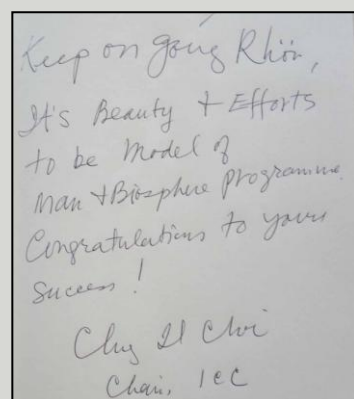 Keep on going Rhön,
It's Beauty + Efforts
to be Model of
Man + Biosphere programme.
Congratulations to yours
success!
Chung Il Choi
Chair, ICC